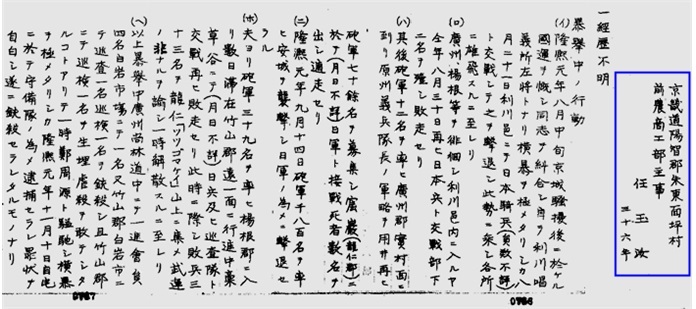 京畿道陽智郡朱東面坪村
前農商工部主事
任玉汝
三十六年
一經歷不明
暴擧中ノ行動
(イ)隆熙元年八月中旬京城騷擾後ニ於ケル
國運ヲ慨シ同志ヲ糾合シ自ラ利川唱
義所左將トナリ横暴ヲ極メタリシカ八
月二十一日利川邑ニテ日本騎兵(員數不詳)
ト交戰シテ之ヲ擊退シ此勢ニ乘シ各所
ニ雄飛スルニ至レリ
(ロ)廣州、楊根等ヲ徘徊シ利川邑內ニ入ルヤ
仝年八月三十日再ヒ日本兵ト交戰部下
二名ヲ殪シ敗走セリ
(ハ)其後砲軍十二名ヲ率ヒ廣州郡實村面ニ
到リ原州義兵隊長ノ軍略ヲ用ヰ再ヒ
砲軍七十餘名ヲ募集シ廣嚴(龍仁郡)ニ
於テ(月日不詳)日軍ト接戰死者數名ヲ
出シ遁走セリ
(ニ)隆熙元年九月十四日砲軍千八百名ヲ率
ヒ安城ヲ襲擊シ日軍ノ為メニ擊退セ
ラル
(ホ)夫ヨリ砲軍三十九名ヲ率ヒ楊根郡ニ入
リ數日滯在竹山郡遠一面ニ行進中棄
草谷ニテ(月日不詳)日兵及ヒ巡査隊ト
交戰再ヒ敗走セリ此時ニ際シ敗兵三
十三名ヲ龍仁ツツコマケイ山上ニ集メ武運
ノ非ナルヲ諭シ一時解散スルニ至レリ
(ヘ)以上暴擧中廣州尚林道中ニテ一進會員
四名白岩市場ニテ一名又竹山郡白岩市ニ
テ巡査一名巡檢一名ヲ銃殺シ且竹山郡
ニテ巡檢一名ヲ生埋虐殺ヲ敢テシタ
ルコトアリテ一時鄭周源ト驅馳シ横暴
ヲ極メタリシカ隆熙元年十一月十日自宅
ニ於テ守備隊ノ為メ逮捕セラレ罪狀ヲ
自白シ遂ニ銃殺セラレタルモノナリ
0786
0787